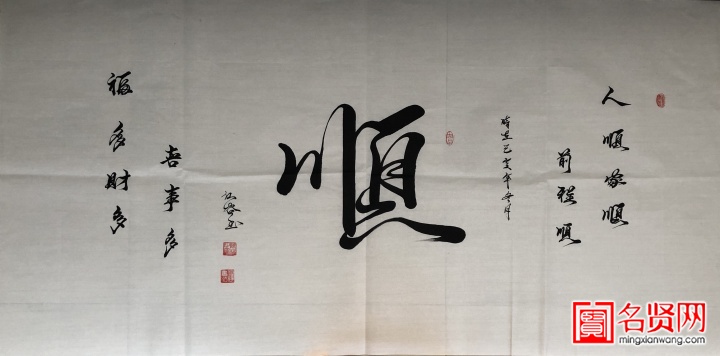 人順家順
前程順
時在己亥年冬月
順
福多財多
喜事多
名贤网
mingxianwang.com